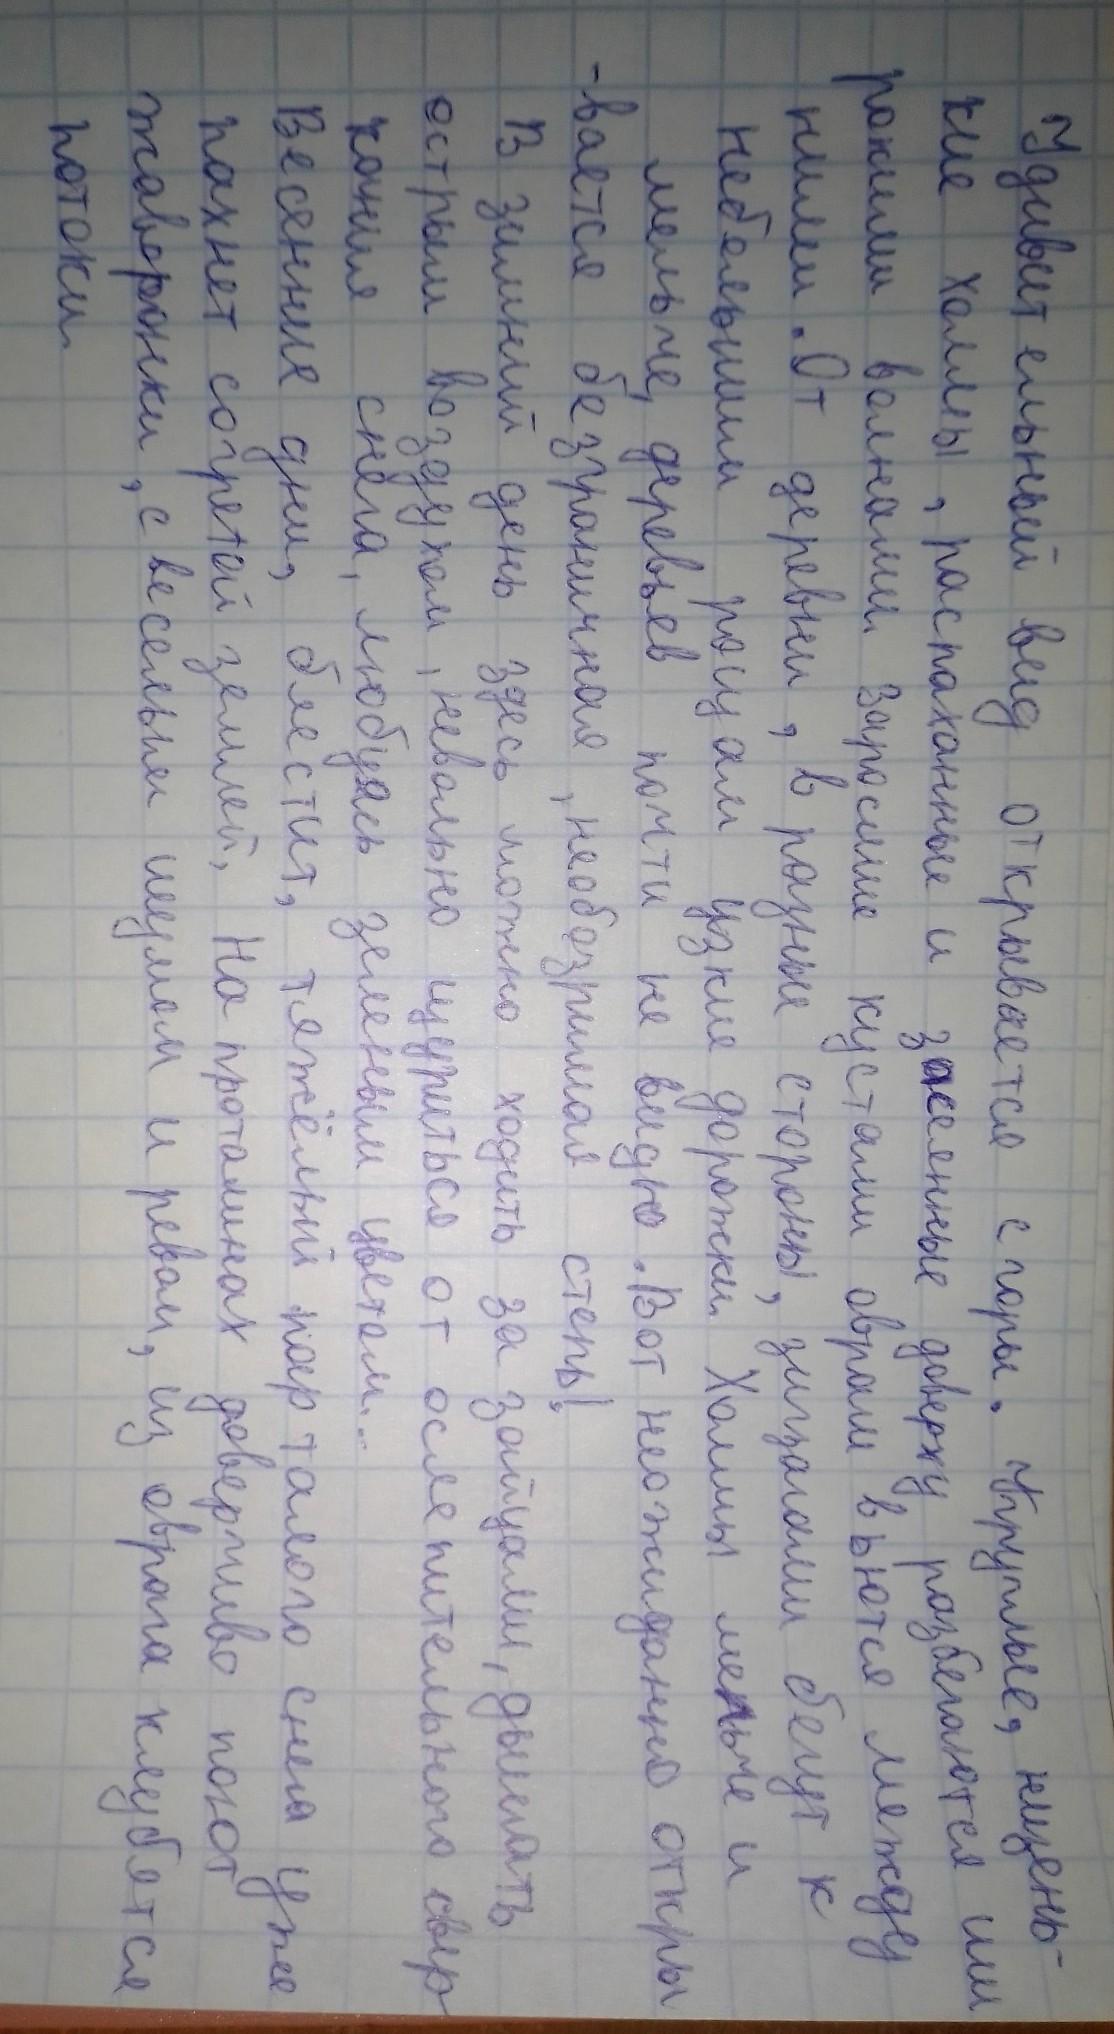 Удивительный вид открывается с горы. Круглые, низень-
кие холмы, распаханные и засеянные доверху разбегаются ши
рокими волнами. Заросшие кустами овраги вьются между
ними. От деревни, в разные стороны, зигзагами бегут к
небольшим рощам узкие дорожки. Холмы меньше и
меньше, деревьев почти не видно. Вот неожиданно откры
-вается безграничная, необозримая степь!
В зимний день здесь можно ходить за зайцами, дышать
острым воздухом, невольно щуриться от ослепительного свер
кания снега, любуясь зеленым цветом...
Весенние дни, блестит, тяжёлый пар талого снега уже
пахнет согретой землей, На проталинах доверчиво поют
жаворонки, с веселым шумом и ревом, из оврага клубятся
потоки.